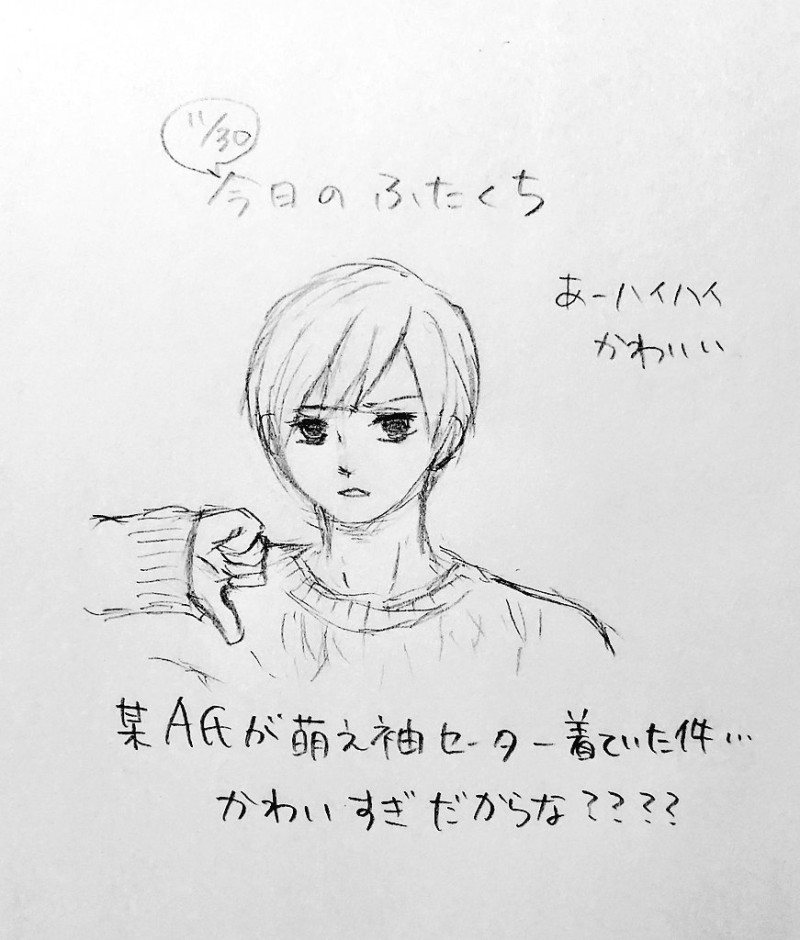 11/30
今日のふたくち
あーハイハイ
かわいい
某A氏が萌え袖セーター着ていた件…
かわいすぎだからな????